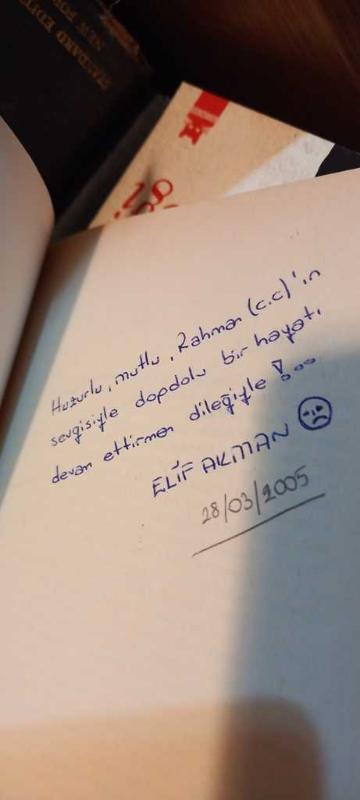 STANDARD EDITI
NEW YOR
Huzurlu, mutlu, Rahman (c.c)'ın
sevgisiyle dopdolu bir hayatı
devam ettirmen dileğiyle !...
ELİF AKMAN
28/03/2005